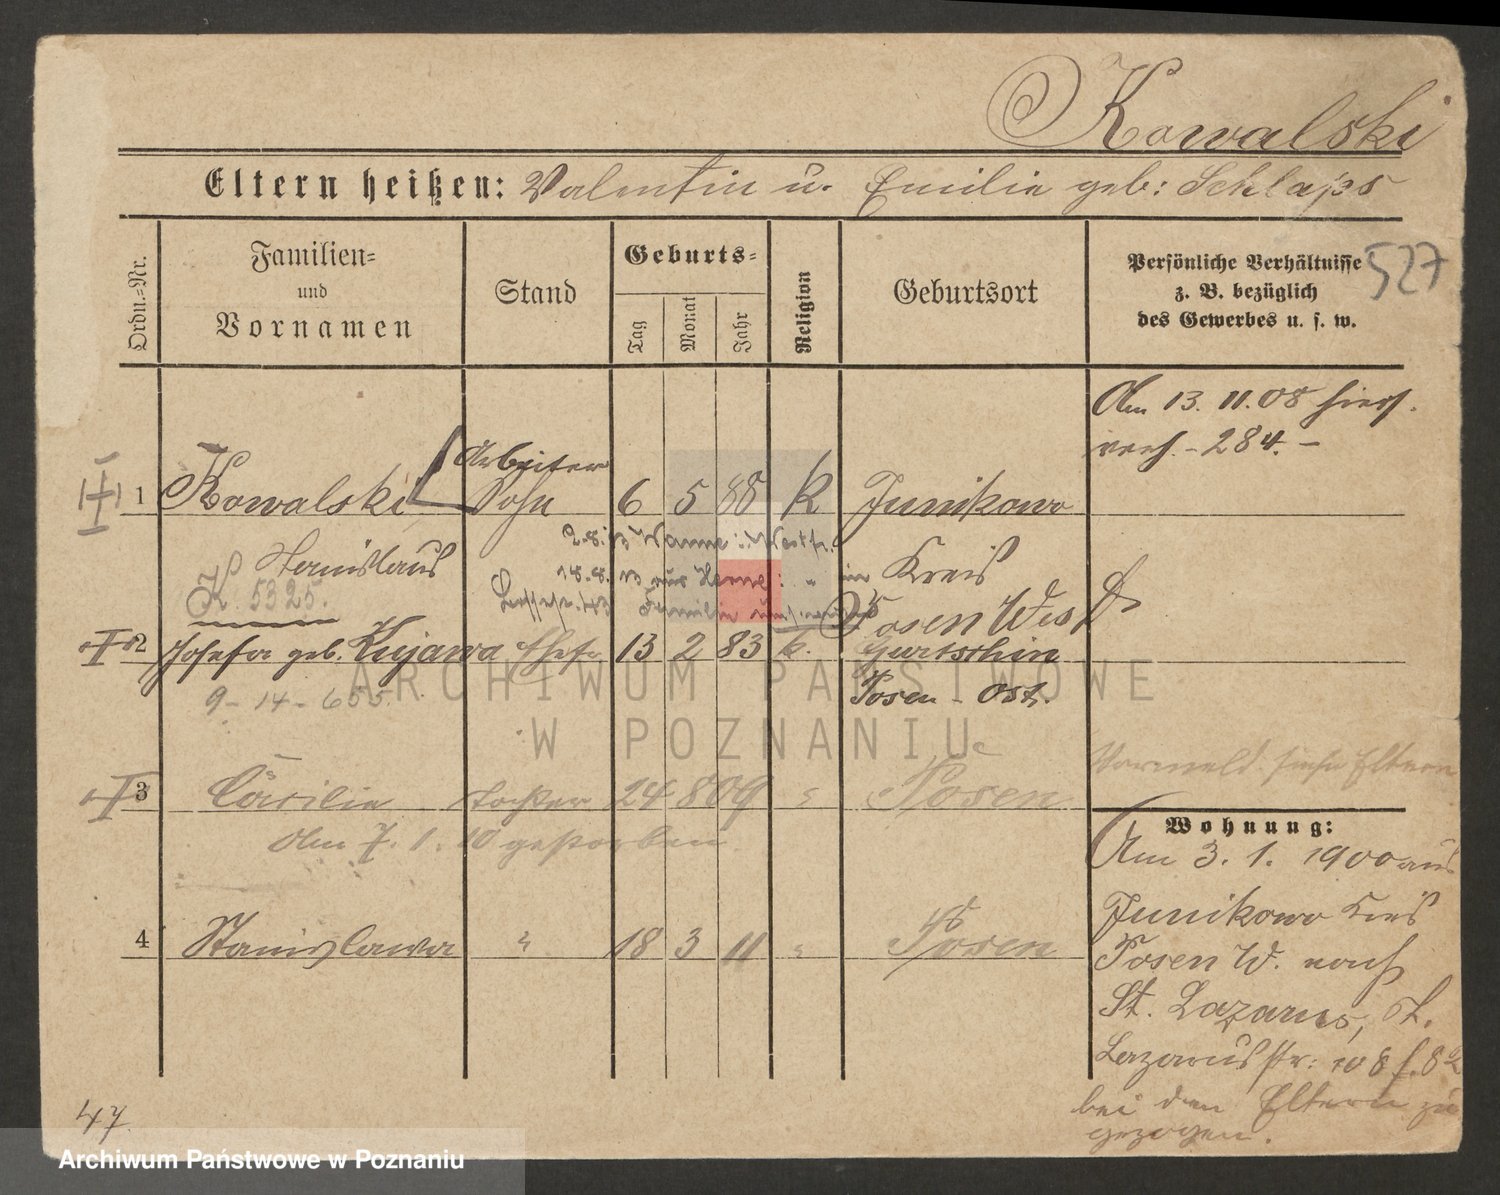 Kowalski
Eltern heißen: Valentin u. Emilie geb: Schlaps
527
Ordn.-Nr.
Familien-
und
Vornamen
Stand
Geburts-
Tag
Monat
Jahr
Religion
Geburtsort
Persönliche Verhältnisse
z. B. bezüglich
des Gewerbes u. s. w.
Am 13. 11. 08 hiers.
verh. - 284. -
Arbeiter
1 Kowalski Sohn 6 5 88 k Junikowo
Stanislaus
Kreis
Posen West
K. 5325.
2.8. 13 Wanne i. Westf.
18.8. 13 aus Herne: "
Familie
2 Josefa geb. Kujawa Ehefr. 13 2 83 k. Gurtschin
Posen - Ost.
9-14-655.
Vorname siehe Eltern
3 Cäcilie Tochter 24 8 09 " Posen
Am 7. 1. 10 gestorben
4 Stanislawa " 18 3 11 " Posen
Wohnung:
Am 3. 1. 1900 aus
Junikowo Kreis
Posen W. nach
St. Lazarus, St.
Lazarusstr: 10 8 f. 82
bei den Eltern zu
gezogen.
47
ARCHIWUM PAŃSTWOWE
W POZNANIU
Archiwum Państwowe w Poznaniu